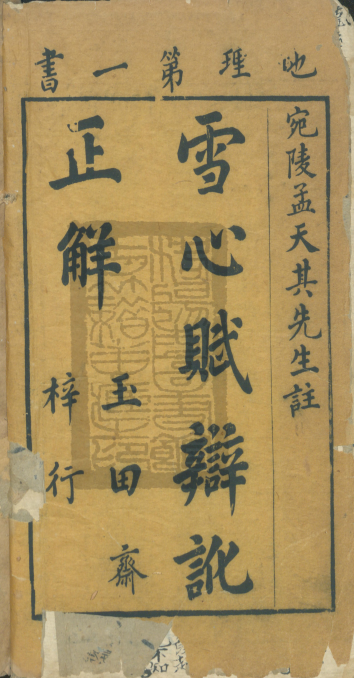 地理第一書
宛陵孟天其先生註
雪心賦辯訛
正解
玉田齋
梓行